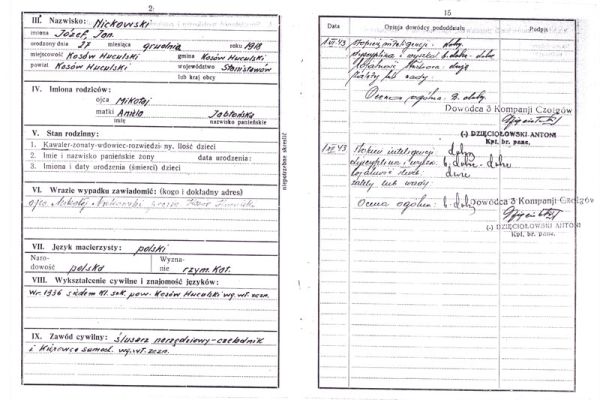 2.
III. Nazwisko: Mickowski
imiona Józef, Jan.
urodzony dnia 27 miesiąca grudnia roku 1918
miejscowość Kosów Huculski gmina Kosów Huculski
powiat Kosów Huculski województwo Stanisławów
lub kraj obcy
IV. Imiona rodziców:
ojca Mikołaj
matki Aniela Jabłońska
imię nazwisko panieńskie
V. Stan rodzinny:
1. Kawaler-żonaty-wdowiec-rozwiedziony. Ilość dzieci
2. Imię i nazwisko panieńskie żony data urodzenia:
3. Imiona i daty urodzenia (śmierci) dzieci
niepotrzebne skreślić
VI. W razie wypadku zawiadomić: (kogo i dokładny adres)
ojca Mikołaj
VII. Język macierzysty: polski
Narodowość polska Wyznanie rzym. kat.
VIII. Wykształcenie cywilne i znajomość języków:
W r. 1936 siedem kl. szk. pow. Kosów Huculski wg. wł. zezn.
IX. Zawód cywilny: ślusarz narzędziowy-czeladnik
i kierowca samoch. wg. wł. zezn.
15
Data Opinja dowódcy pododdziału Podpis
Stopień inteligencji: dobry
Ocena ogólna: b. dobry
Dowódca 3 Kompanji Czołgów
(-) DZIĘCIOŁOWSKI ANTONI
Kpt. br. panc.
Stopień inteligencji: dobry
zalety lub wady:
Ocena ogólna: b. dobry
Dowódca 3 Kompanji Czołgów
(-) DZIĘCIOŁOWSKI ANTONI
Kpt. br. panc.